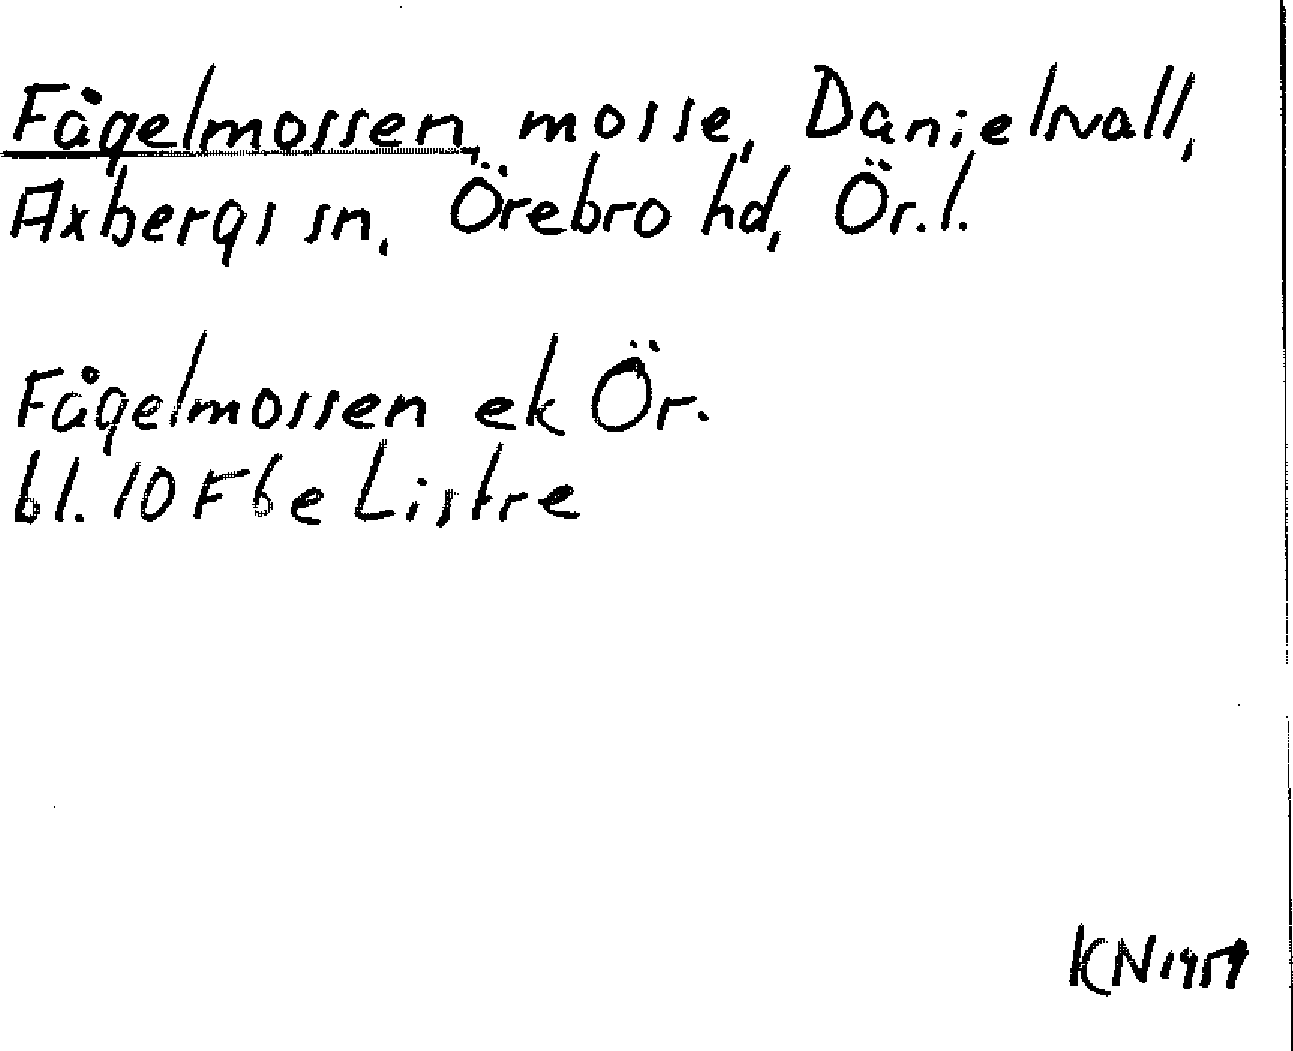 Fågelmossen, mosse, Danielsvall,
Axbergs sn, Örebro hd, Ör.l.
Fågelmossen ek Ör.
bl. 10 F6e Listre
KN